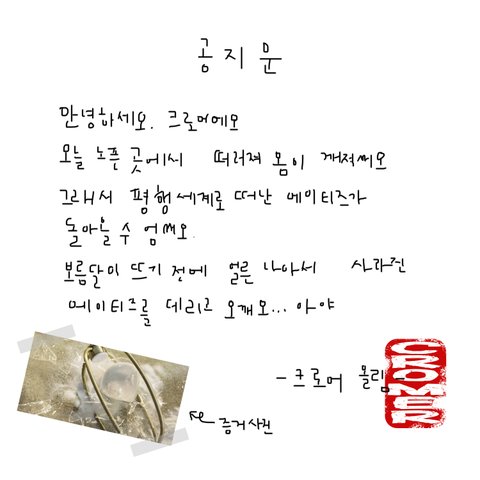 공지문
안녕하세오. 크로머에오
오늘 노픈 곳에서 떠러져 몸이 깨져써오
그래서 평행세계로 떠난 에이티즈가
돌아올 수 엄써오.
보름달이 뜨기 전에 얼른 나아서 사라진
에이티즈를 데리고 오깨오... 아야
- 크로머 올림 -
증거사진